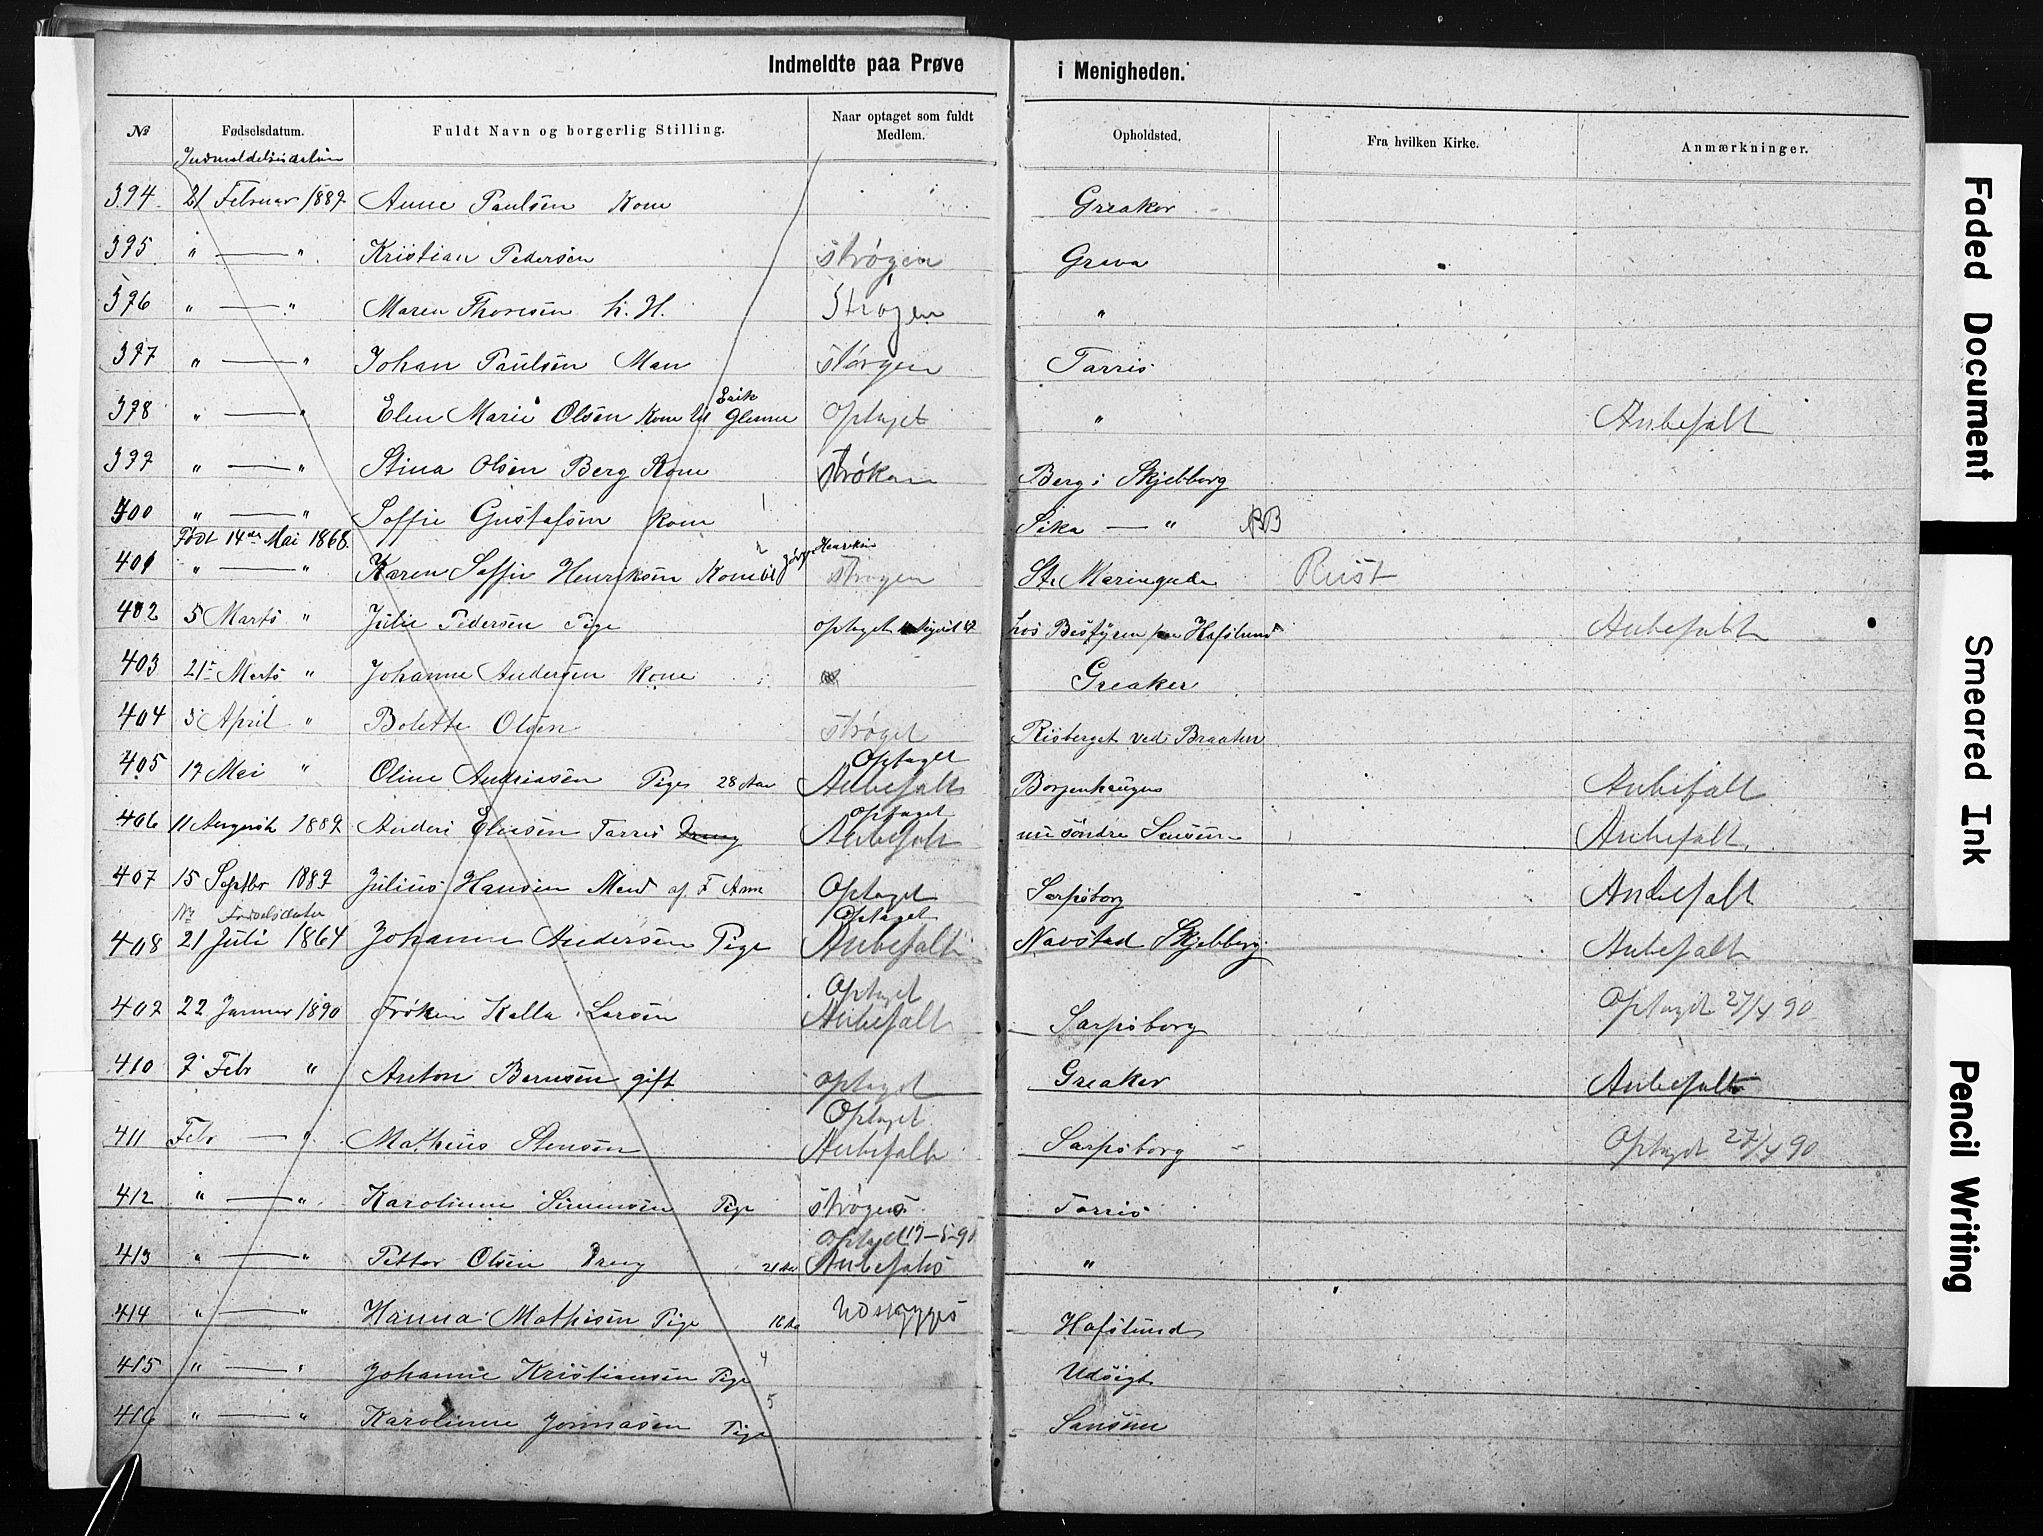 Indmeldte paa Prøve i Menigheden.
№ Fødselsdatum. Fuldt Navn og borgerlig Stilling. Naar optaget som fuldt Medlem. Opholdsted. Fra hvilken Kirke. Anmærkninger.
Indmeldelsesdatum
394 21 Februar 1889 Anne Paulsen Kone Greaker
395 " — " Kristian Pedersen strøgen Greva
396 " — " Maren Thoresen h. H. Strøgen "
397 " — " Johan Paulsen Man strøgen Tarris
398 " — " Elen Marie Olsen Kone til Erik Glenne optaget " Anbefalt
399 " — " Stina Olsen Berg Kone Berg i Skjebberg
400 " — " Soffie Gustafsen Kone — "
Født 14de Mai 1868.
401 " — " Karen Soffie Henriksen Kone til Henriksen strøgen St. Maringade Rust
402 5 Marts " Julie Pedersen Pige optaget hos Bestyren paa Hafslund Anbefalt
403 21 Marts " Johanne Andersen Kone Greaker
404 5 April " Bolette Olsen strøget Risberget ved Braaten
405 19 Mai " Oline Andriasen Pige 28 Aar Optaget Anbefalt Borgenhaugen Anbefalt
406 11 August 1889 Anders Elisen Tarris Dreng optaget Anbefalt søndre Anbefalt
407 15 Septbr 1889 Julius Hansen Med af F Arm Optaget Sarpsborg Anbefalt
No Fødselsdato
408 21 Juli 1864 Johanne Andersen Pige Optaget Anbefalt Navstad Skjebberg Anbefalt
409 22 Januar 1890 Frøken Kalla Larsen Optaget Anbefalt Sarpsborg Optaget 27/4 90
410 9 Febr " Anton Bernsen gift optaget Greaker Anbefalt
411 Febr — " Mathias Stensen Optaget Anbefalt Sarpsborg Optaget 27/4 90
412 " — " Karoline Simensen Pige strøges Torris
413 " — " Petter Olsen Dreng 21 Aar optaget 19–5–90 Anbefales "
414 " — " Hanna Mathisen Pige 18 Aar Hafslund
415 " — " Johanne Kristiansen Pige 4 Udsigt
416 " — " Karoline Jonnasen Pige 5 Sansum
Faded Document
Smeared Ink
Pencil Writing